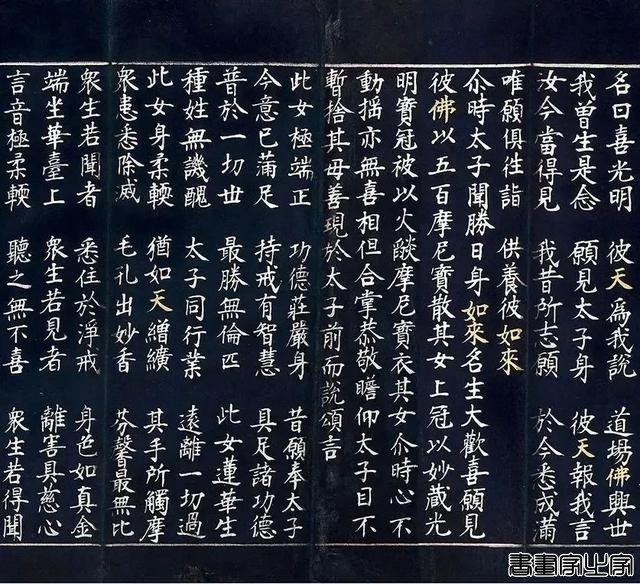 名曰喜光明 彼天為我說 道場佛興世
我曾生是念 願見太子身 彼天報我言
汝今當得見 我昔所志願 於今悉成滿
唯願俱往詣 供養彼如來
尒時太子聞勝日身如來名生大歡喜願見
彼佛以五百摩尼寶散其女上冠以妙藏光
明寶冠被以火燄摩尼寶衣其女尒時心不
動搖亦無喜相但合掌恭敬瞻仰太子目不
暫捨其母善現於太子前而說頌言
此女極端正 功德莊嚴身 昔願奉太子
今意已滿足 持戒有智慧 具足諸功德
普於一切世 最勝無倫匹 此女蓮華生
種姓無譏醜 太子同行業 遠離一切過
此女身柔輭 猶如天繒纊 其手所觸摩
衆患悉除滅 毛孔出妙香 芬馨最無比
衆生若聞者 悉住於淨戒 身色如真金
端坐華臺上 衆生若見者 離害具慈心
言音極柔輭 聽之無不喜 衆生若得聞
書畫家之家